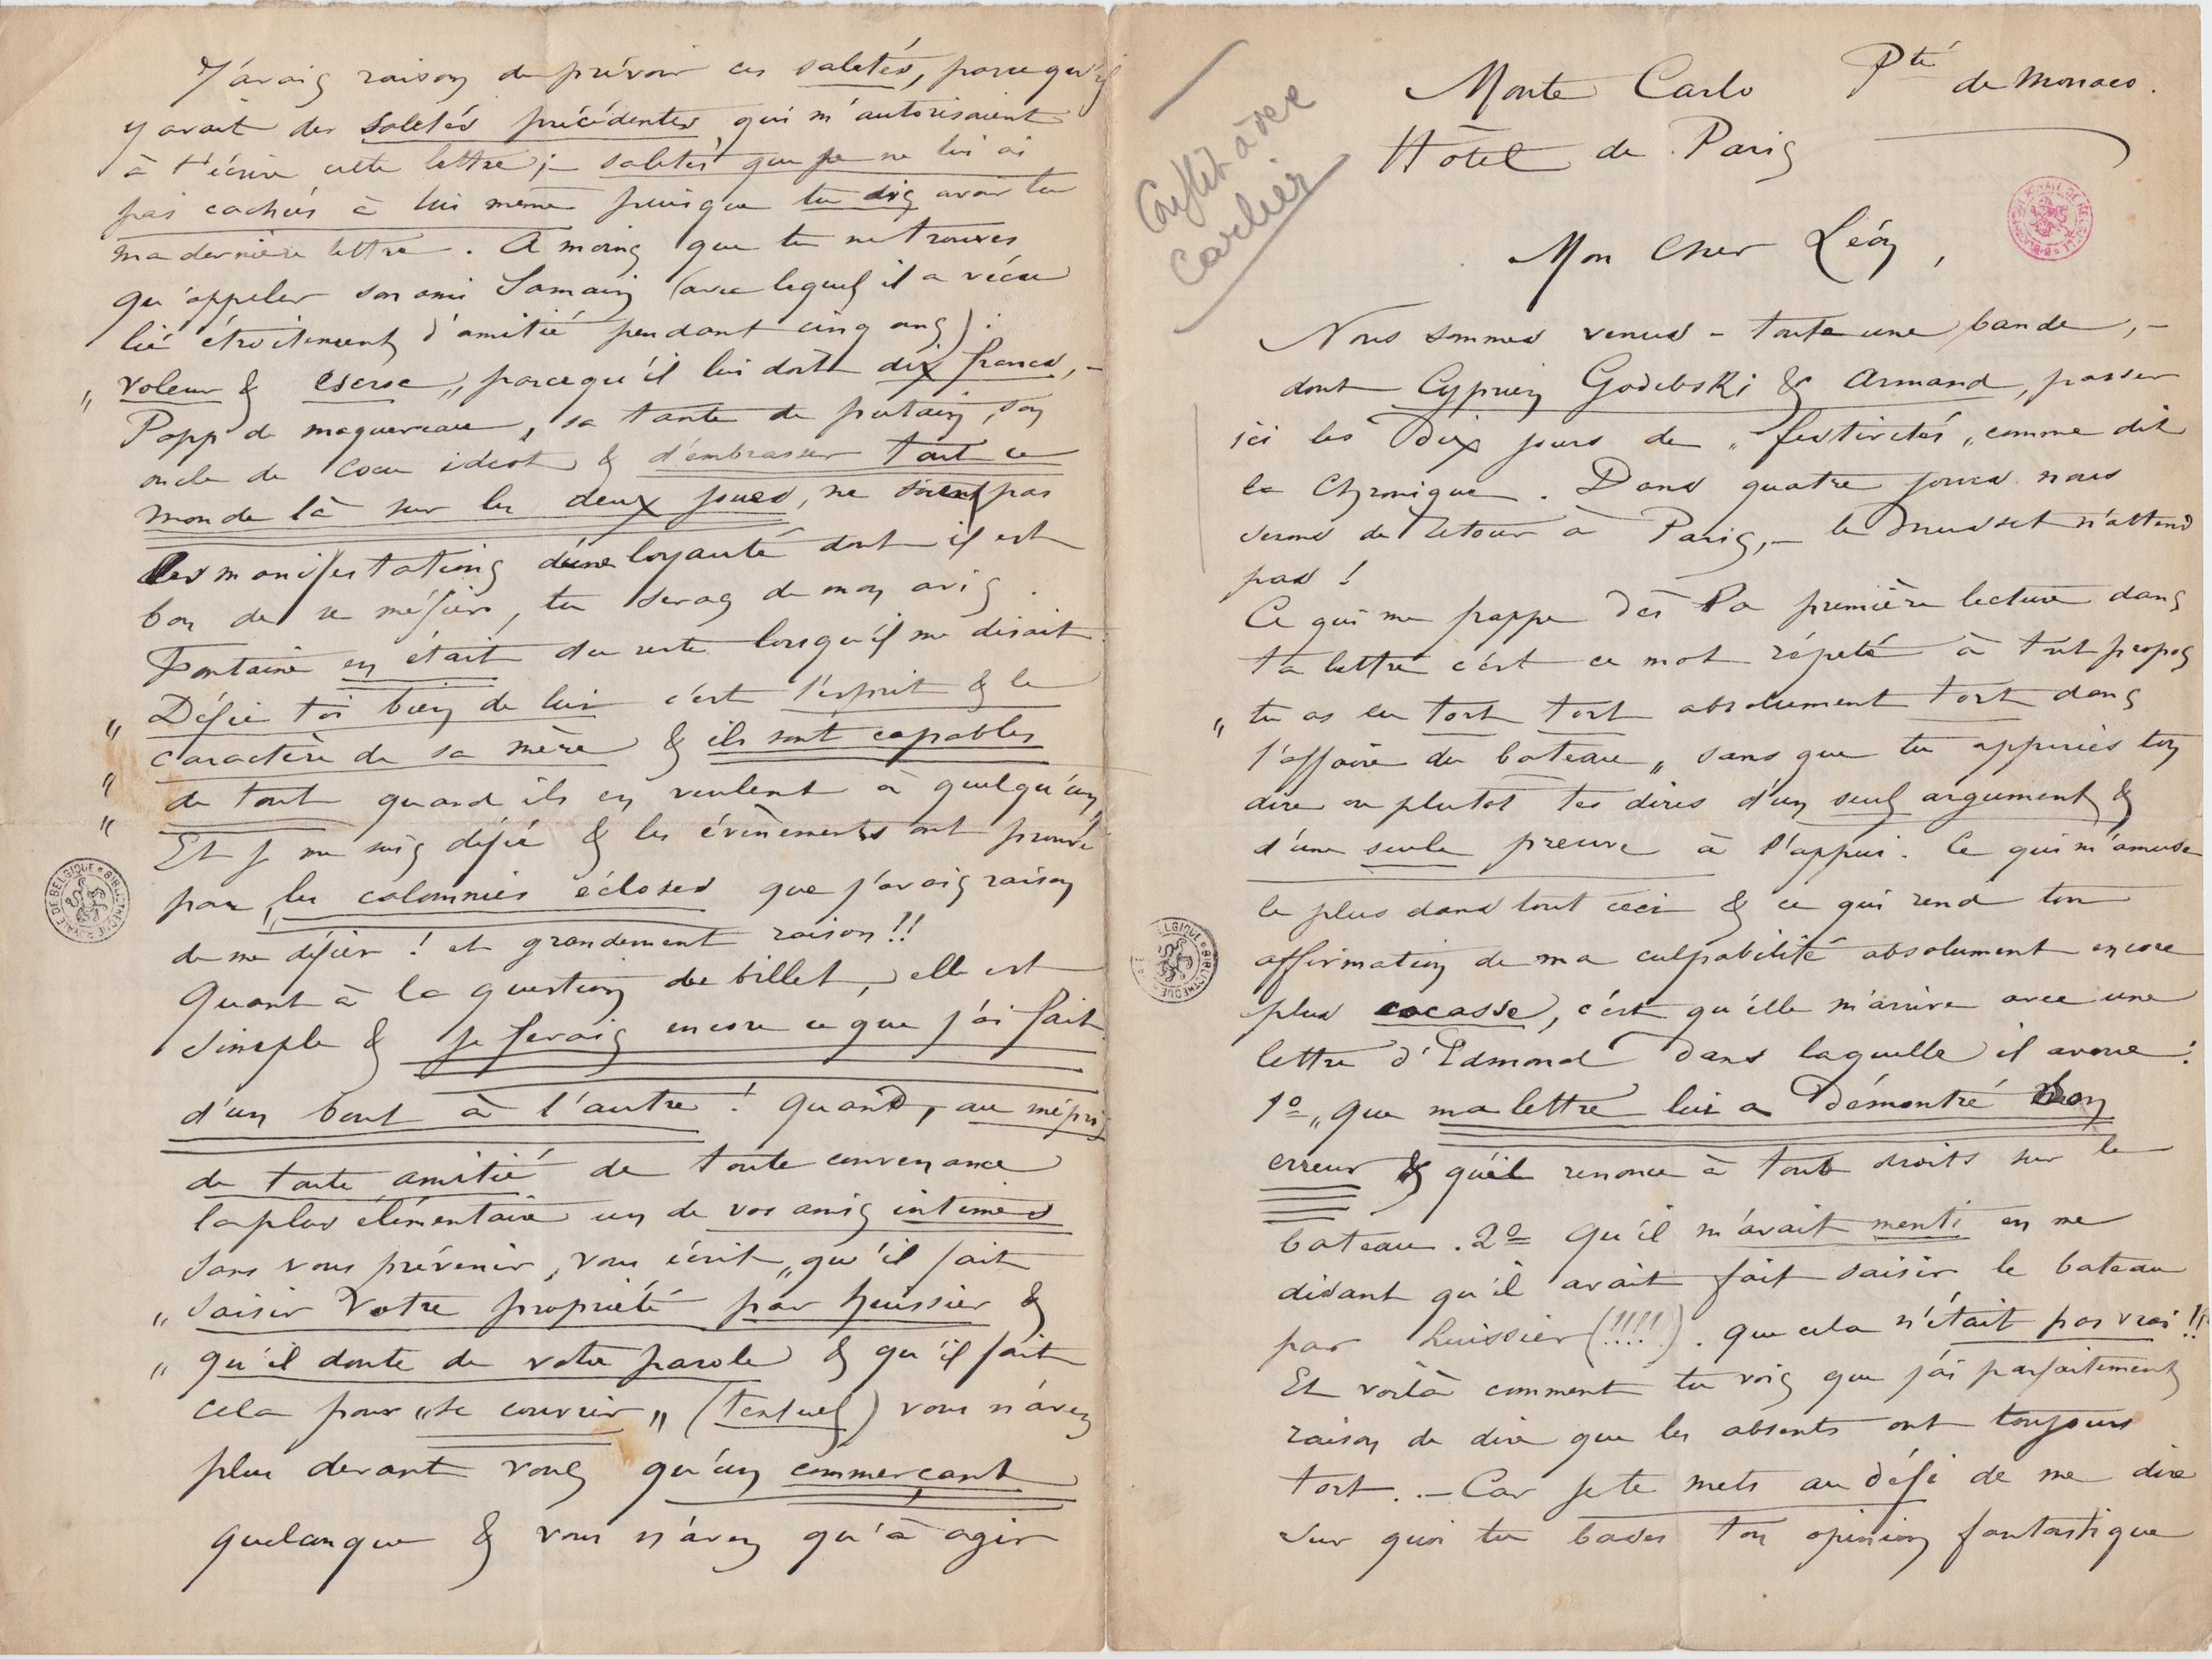 Monte Carlo Pté de Monaco.
Hôtel de Paris
Conflit avec
Carlier
Mon Cher Léon,
Nous sommes venus – toute une bande, –
dont Cyprien Godebski & Armand, passer
ici les dix jours de „ festivités „ comme dit
la Chronique. Dans quatre jours nous
serons de retour à Paris, – le Musset n'attend
pas !
Ce qui me frappe dès la première lecture dans
ta lettre c'est ce mot répété à tout propos
„ tu as eu tort tort absolument tort dans
l'affaire du bateau „ sans que tu appuies ton
dire ou plutot tes dires d'un seul argument &
d'une seule preuve à l'appui. Ce qui m'amuse
le plus dans tout ceci & ce qui rend ton
affirmation de ma culpabilité absolument encore
plus cocasse, c'est qu'elle m'arrive avec une
lettre d'Edmond dans laquelle il avoue :
1º „ que ma lettre lui a démontré son
erreur & qu'il renonce à tout droits sur le
bateau. 2º Qu'il m'avait menti en me
disant qu'il avait fait saisir le bateau
par huissier (!!!!). que cela n'était pas vrai !!
Et voilà comment tu vois que j'ai parfaitement
raison de dire que les absents ont toujours
tort. – Car je te mets au défi de me dire
sur quoi tu bases ton opinion fantastique
J'avais raison de prévoir ces saletés, parce qu'il
y avait des saletés précédentes qui m'autorisaient
à t'écrire cette lettre ; – saletés que je ne lui ai
pas cachées à lui même puisque tu dis avoir lu
ma dernière lettre. A moins que tu ne trouves
qu'appeler son ami Samain (avec lequel il a vécu
lié étroitement d'amitié pendant cinq ans) :
„ voleur & escroc „ parcequ'il lui doit dix francs, –
Popp de maquereau, sa tante de putain, son
oncle de cocu idiot & d'embrasser tout ce
monde là sur les deux joues, ne soient pas
les manifestations d'une loyauté dont il est
bon de se méfier, tu seras de mon avis.
Fontaine en était du reste lorsqu'il me disait
„ Défie toi bien de lui c'est l'esprit & le
„ caractère de sa mère & ils sont capables
„ de tout quand ils en veulent à quelqu'un „
Et je me suis défié & les évènements ont prouvé
par les calomnies écloses que j'avais raison
de me défier ! et grandement raison !!
Quant à la question du billet, elle est
simple & je ferais encore ce que j'ai fait
d'un bout à l'autre ! Quand, au mépris
de toute amitié de toute convenance
la plus élémentaire un de vos amis intimes
sans vous prévenir, vous écrit „ qu'il fait
„ saisir votre propriété par huissier &
„ qu'il doute de votre parole & qu'il fait
cela pour „ se couvrir „ (textuel) vous n'avez
plus devant vous qu'un commerçant
quelconque & vous n'avez qu'à agir
BIBLIOTHÈQUE ROYALE DE BELGIQUE